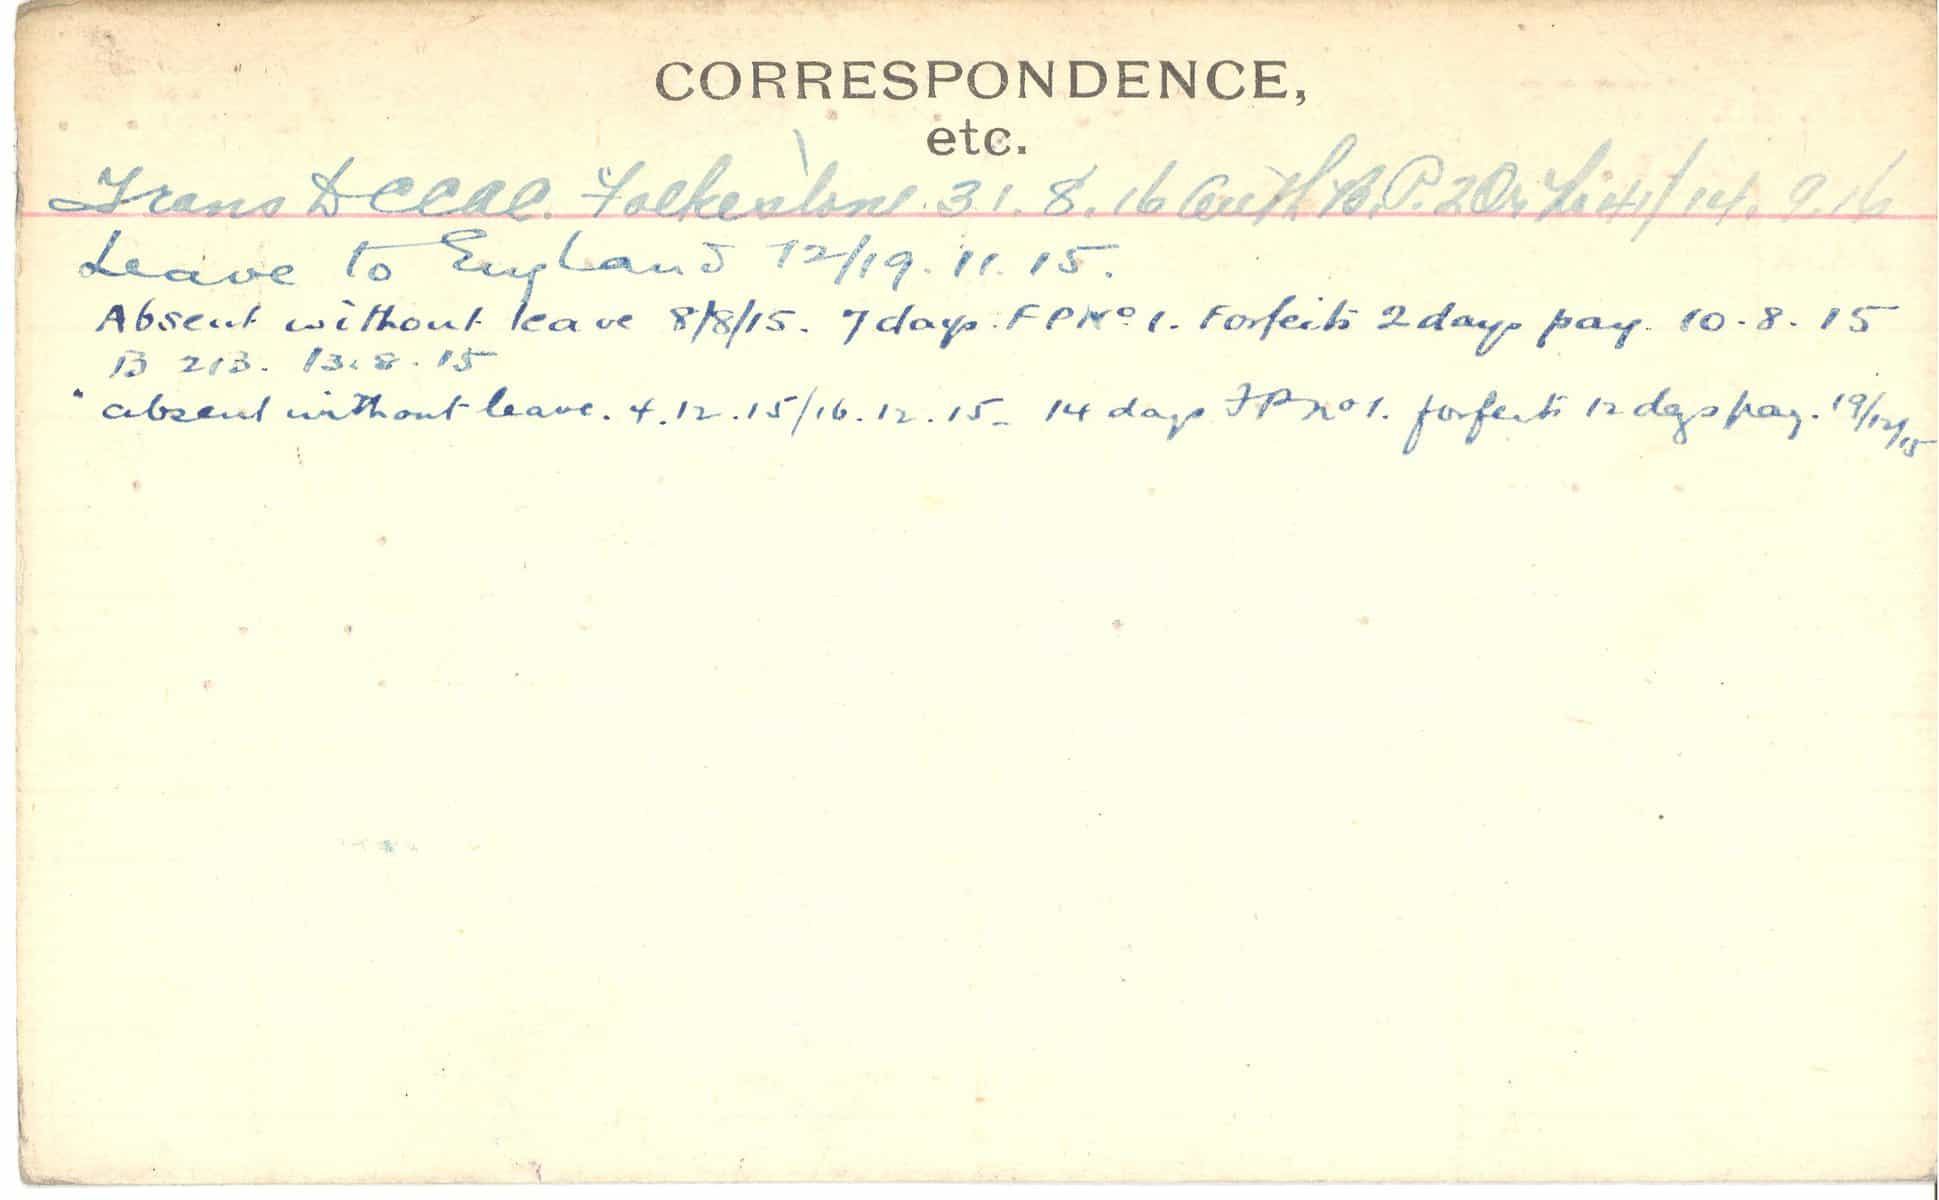 CORRESPONDENCE,
etc.
Trans D CCAC. Folkestone 31.8.16 Auth B.P.2 Or 14.9.16
Leave to England 12/19.11.15.
Absent without leave 8/8/15. 7 days F P No 1. Forfeits 2 days pay. 10-8-15
B 213. 13.8.15
" absent without leave. 4.12.15/16.12.15 - 14 days F P No 1. forfeits 12 days pay. 19/12/15